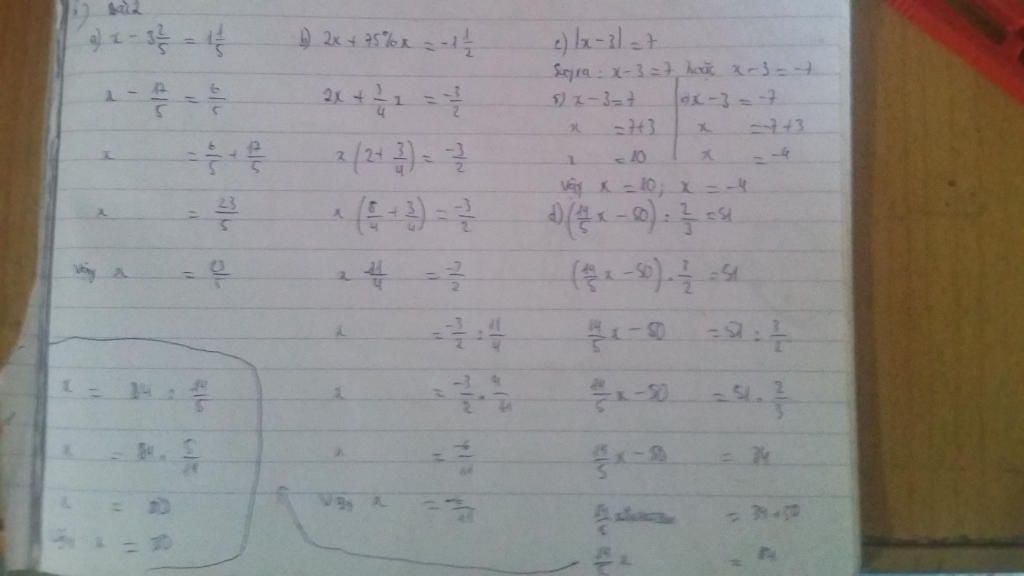 Bài 2
a) x - 3 2/5 = 1 1/5
x - 17/5 = 6/5
x = 6/5 + 17/5
x = 23/5
Vậy x = 23/5
b) 2x + 75% x = -1 1/2
2x + 3/4 x = -3/2
x (2 + 3/4) = -3/2
x (8/4 + 3/4) = -3/2
x 11/4 = -3/2
x = -3/2 : 11/4
x = -3/2 . 4/11
x = -6/11
Vậy x = -6/11
c) |x - 3| = 7
Suy ra : x - 3 = 7 hoặc x - 3 = -7
x - 3 = 7
x = 7 + 3
x = 10
x - 3 = -7
x = -7 + 3
x = -4
Vậy x = 10 ; x = -4
d) (14/5 x - 50) : 2/3 = 51
(14/5 x - 50) . 3/2 = 51
14/5 x - 50 = 51 : 3/2
14/5 x - 50 = 51 . 2/3
14/5 x - 50 = 34
14/5 x = 34 + 50
14/5 x = 84
x = 84 : 14/5
x = 84 . 5/14
x = 30
Vậy x = 30